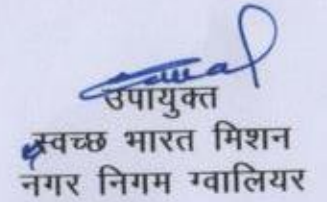 उपायुक्त
स्वच्छ भारत मिशन
नगर निगम ग्वालियर